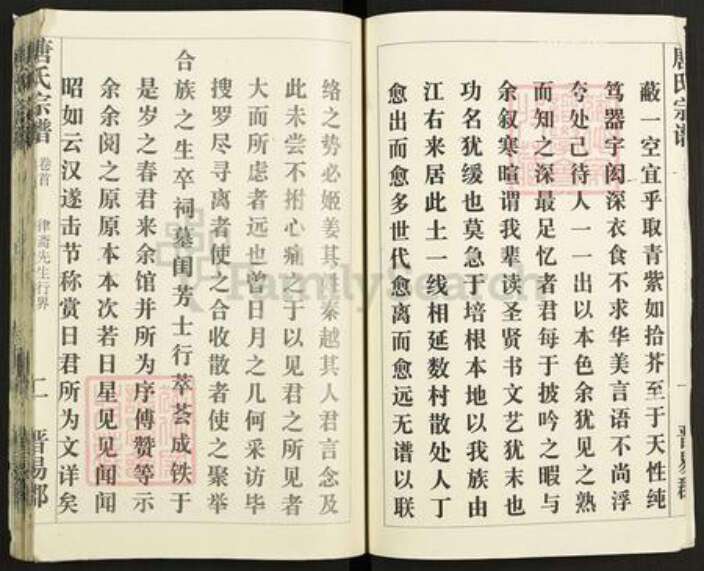 蔽一空宜乎取青紫如拾芥至于天性纯
笃器宇闳深衣食不求华美言语不尚浮
夸处己待人一一出以本色余犹见之熟
而知之深最足忆者君每于披吟之暇与
余叙寒暄谓我辈读圣贤书文艺犹末也
功名犹缓也莫急于培根本地以我族由
江右来居此土一线相延数村散处人丁
愈出而愈多世代愈离而愈远无谱以联
络之势必姬姜其姓秦越其人君言念及
此未尝不拊心痛之于以见君之所见者
大而所虑者远也曾日月之几何采访毕
搜罗尽寻离者使之合收散者使之聚举
合族之生卒祠墓闺芳士行萃荟成铁于
是岁之春君来余馆并所为序傅赞等示
余余阅之原原本本次若日星见见闻闻
昭如云汉遂击节称赏日君所为文详矣
唐氏宗谱
卷首
律斋先生行界
二
晋易郡
唐氏宗谱
晋易郡
FamilySearch